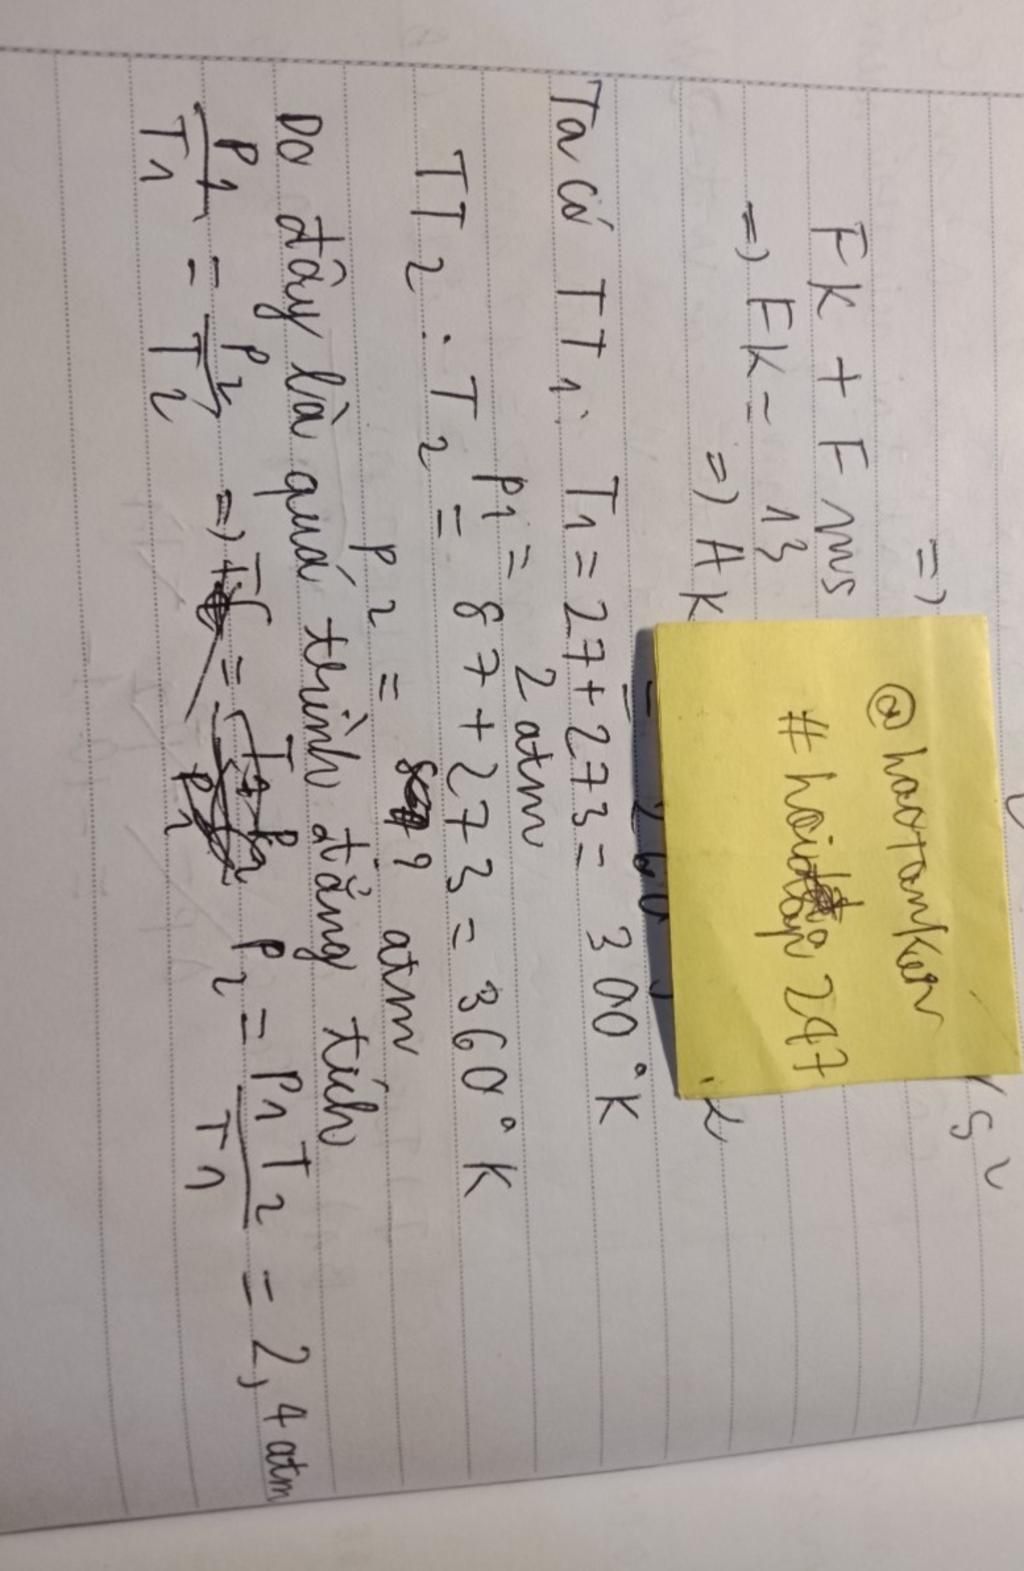 =)
FK + Fms
=) FK = 13
=) AK
@haotanken
#hoidap247
Ta có TT1: T1 = 27+273 = 300°K
P1 = 2 atm
TT2: T2 = 87+273 = 360°K
P2 = ? atm
Do đây là quá trình đẳng tích
P1/T1 = P2/T2 =) P2 = P1T2/T1 = 2,4 atm